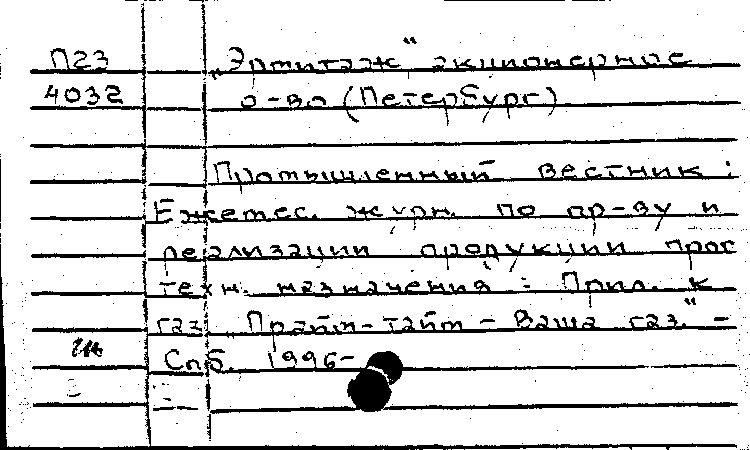 П23 „Эрмитаж“ акционерное
4032 о-во (Петербург)
Промышленный вестник :
Ежемес. журн. по пр-ву и
реализации продукции прос
техн. назначения : Прил. к
газ. „Прайм-тайм – Ваша газ.“ –
Спб. 1996-